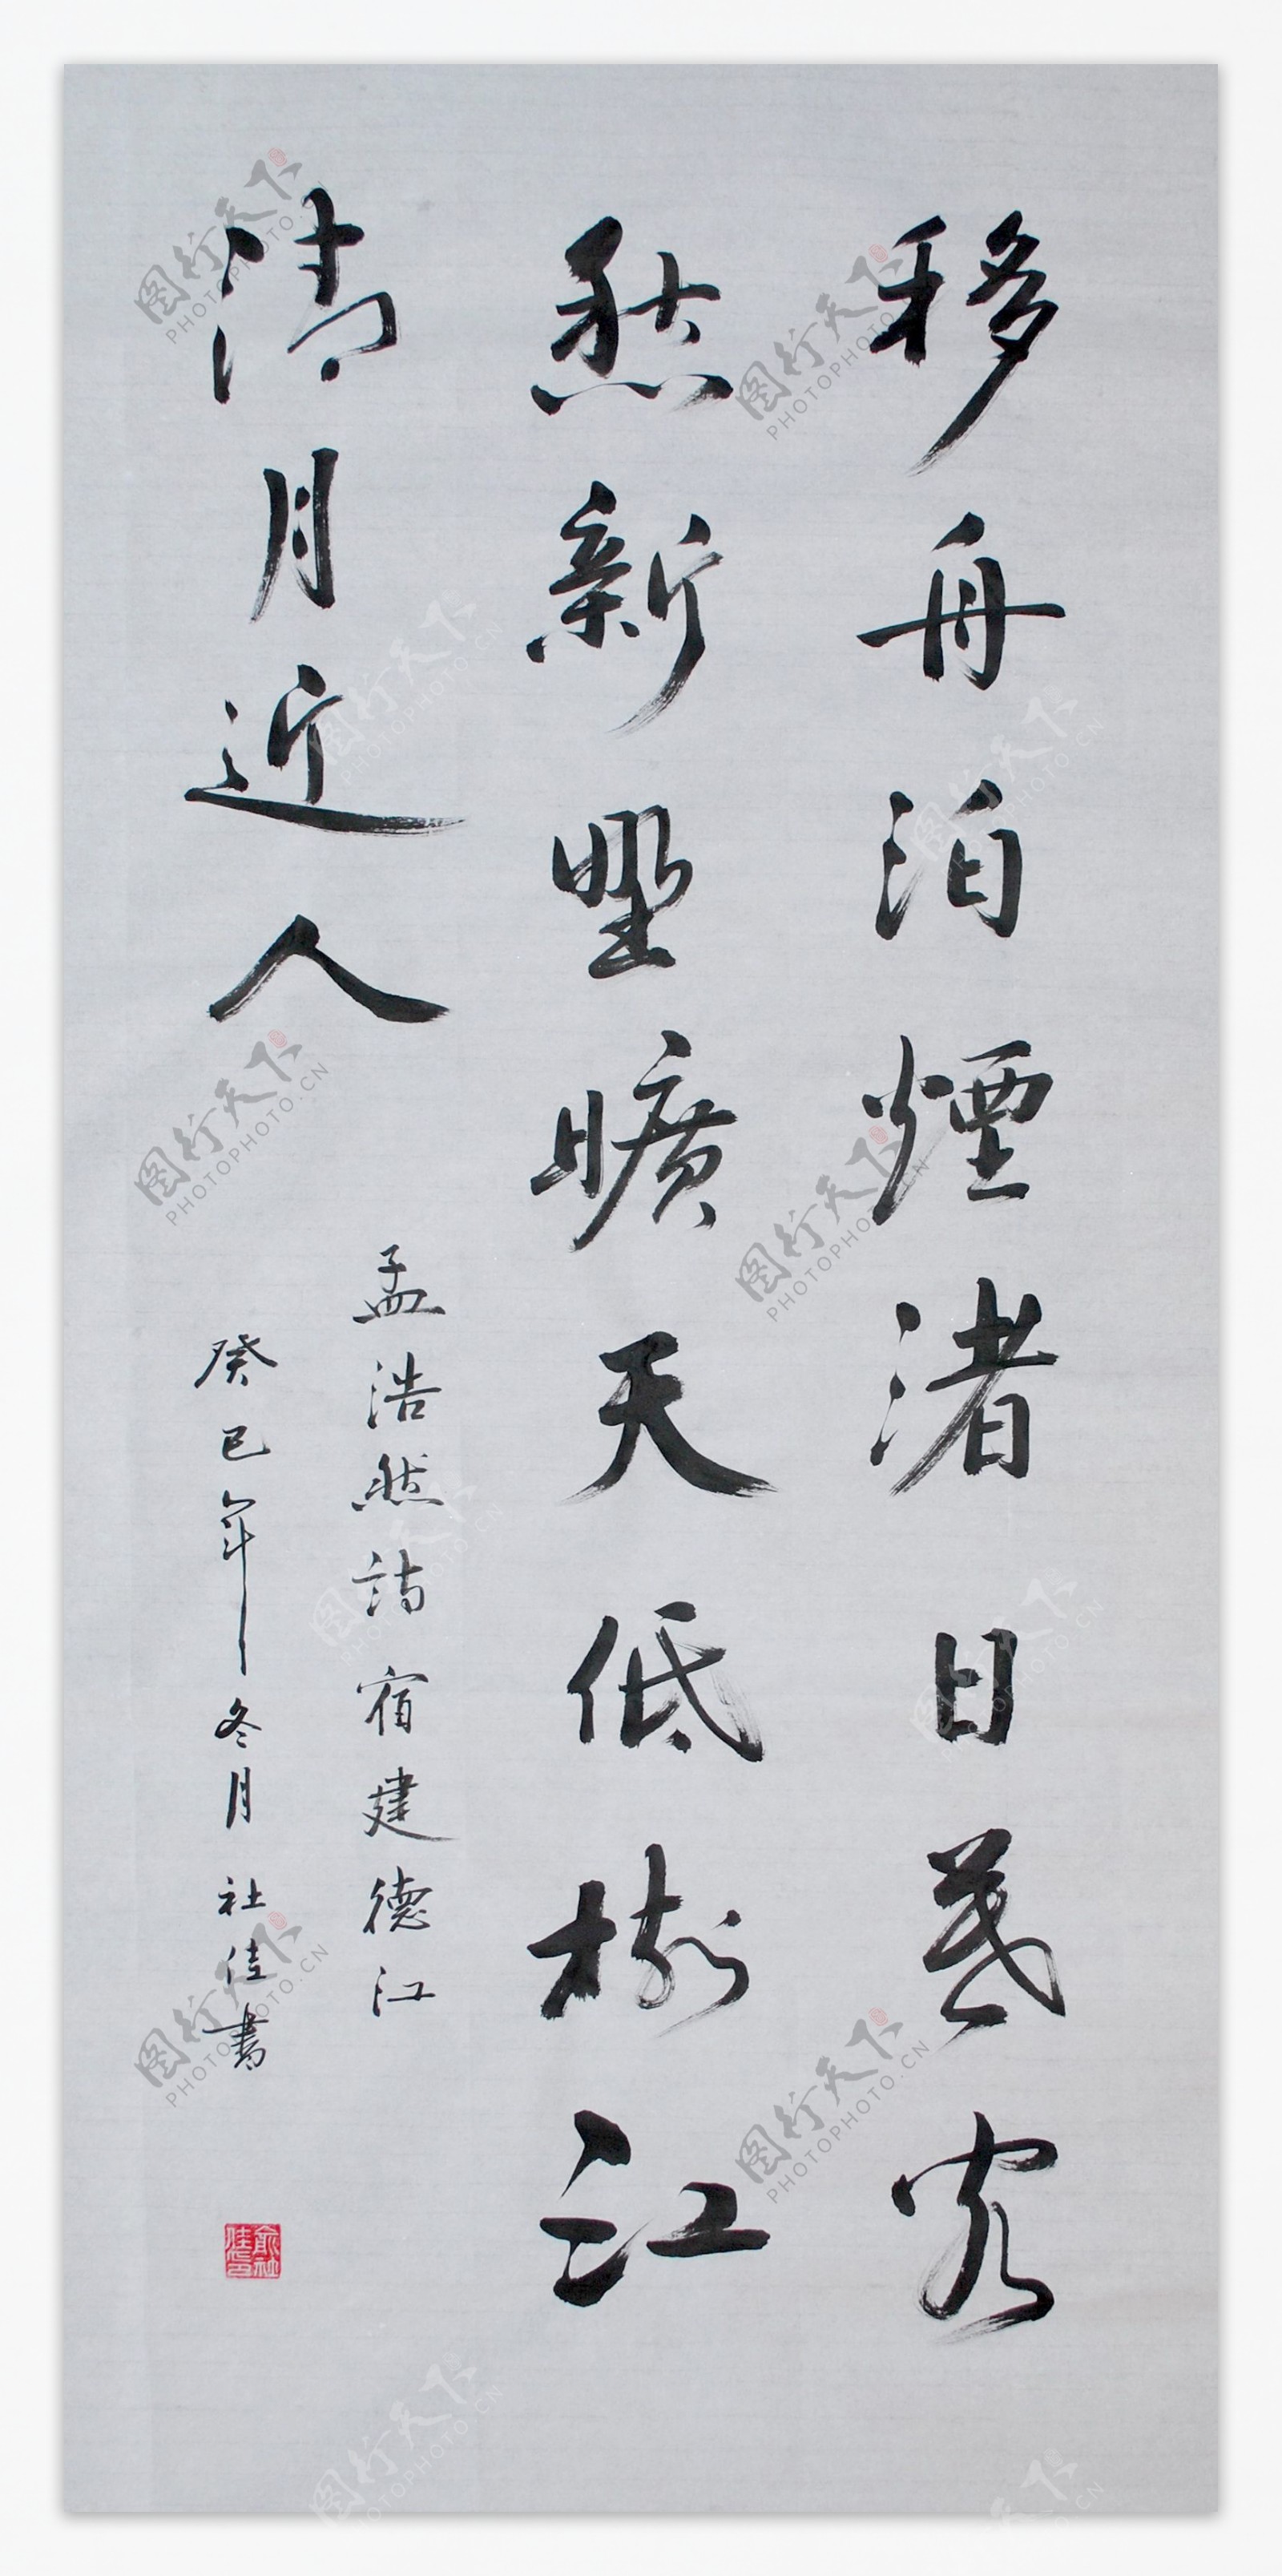 移舟泊煙渚日暮客
愁新野曠天低樹江
清月近人
孟浩然詩宿建德江
癸巳年冬月社佳書
图行天下
PHOTOPHOTO.CN